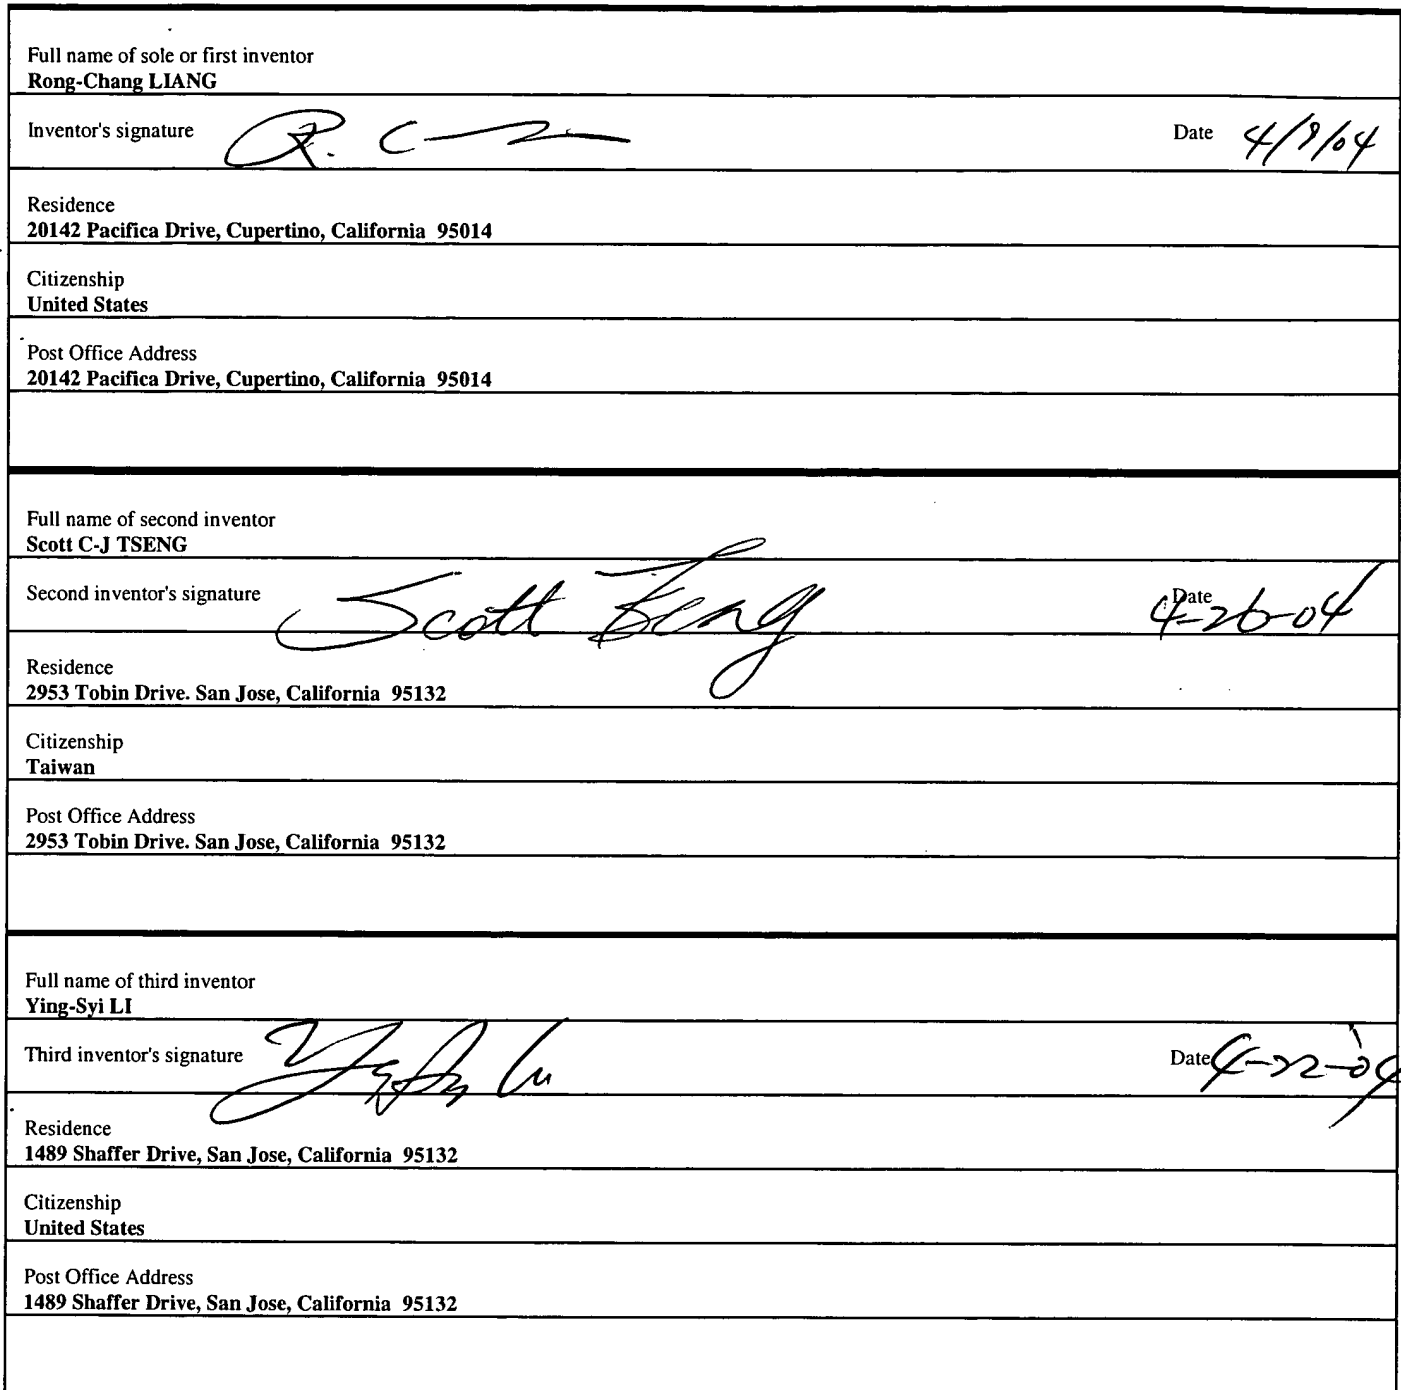 Full name of sole or first inventor
Rong-Chang LIANG
Inventor's signature R. C Date 4/9/04
Residence
20142 Pacifica Drive, Cupertino, California 95014
Citizenship
United States
Post Office Address
20142 Pacifica Drive, Cupertino, California 95014
Full name of second inventor
Scott C-J TSENG
Second inventor's signature Scott Tseng Date 4-26-04
Residence
2953 Tobin Drive. San Jose, California 95132
Citizenship
Taiwan
Post Office Address
2953 Tobin Drive. San Jose, California 95132
Full name of third inventor
Ying-Syi LI
Third inventor's signature Date 4-22-04
Residence
1489 Shaffer Drive, San Jose, California 95132
Citizenship
United States
Post Office Address
1489 Shaffer Drive, San Jose, California 95132